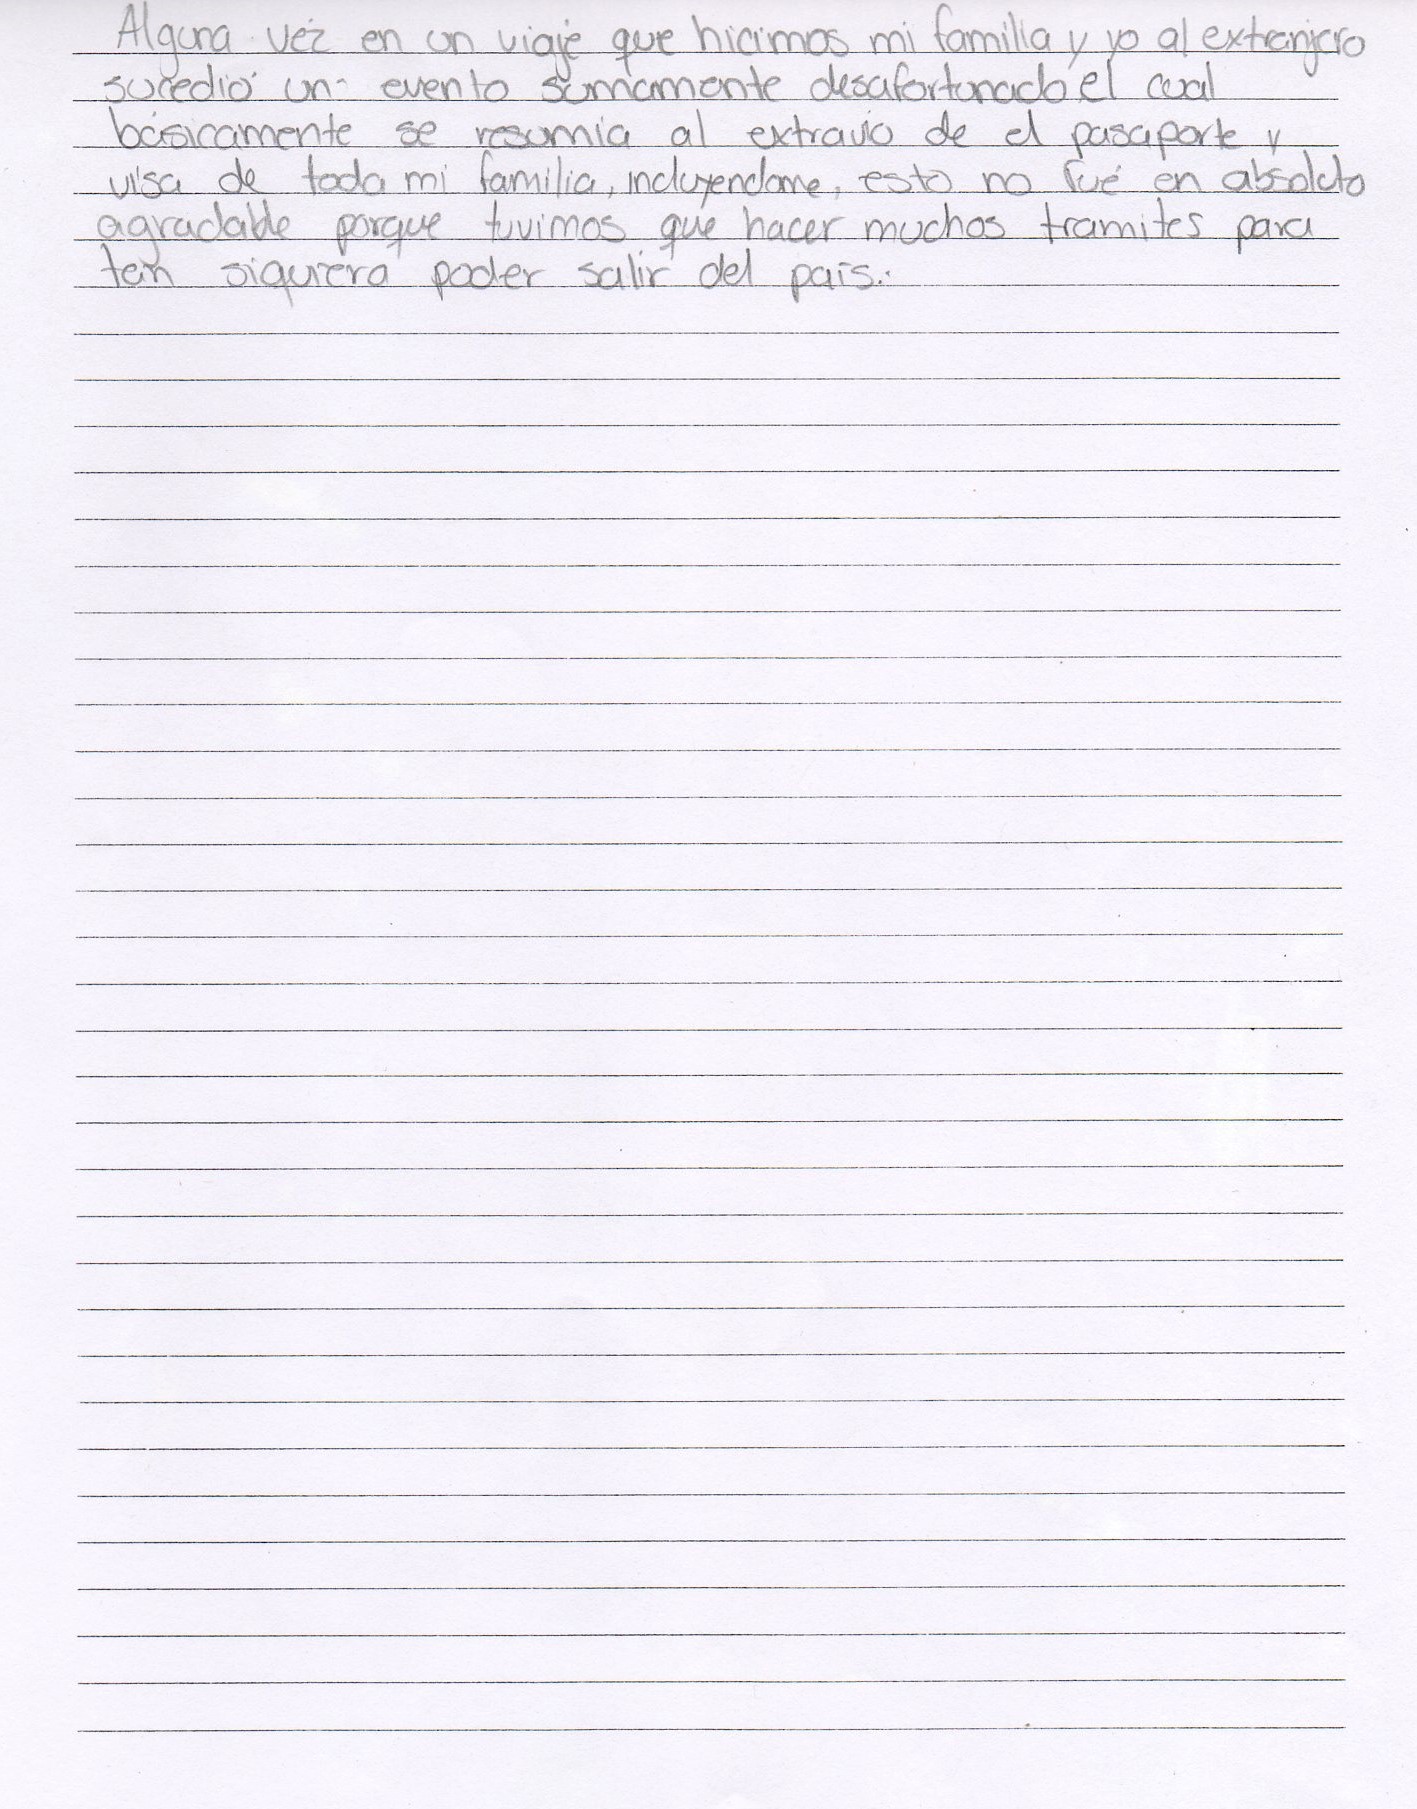 Alguna véz en un viaje que hicimos mi familia y yo al extranjero
sucedió un evento sumamente desafortunado el cual
básicamente se resumia al extravio de el pasaporte y
visa de toda mi familia, incluyendome, esto no fué en absoluto
agradable porque tuvimos que hacer muchos tramites para
tan siquiera poder salir del país.